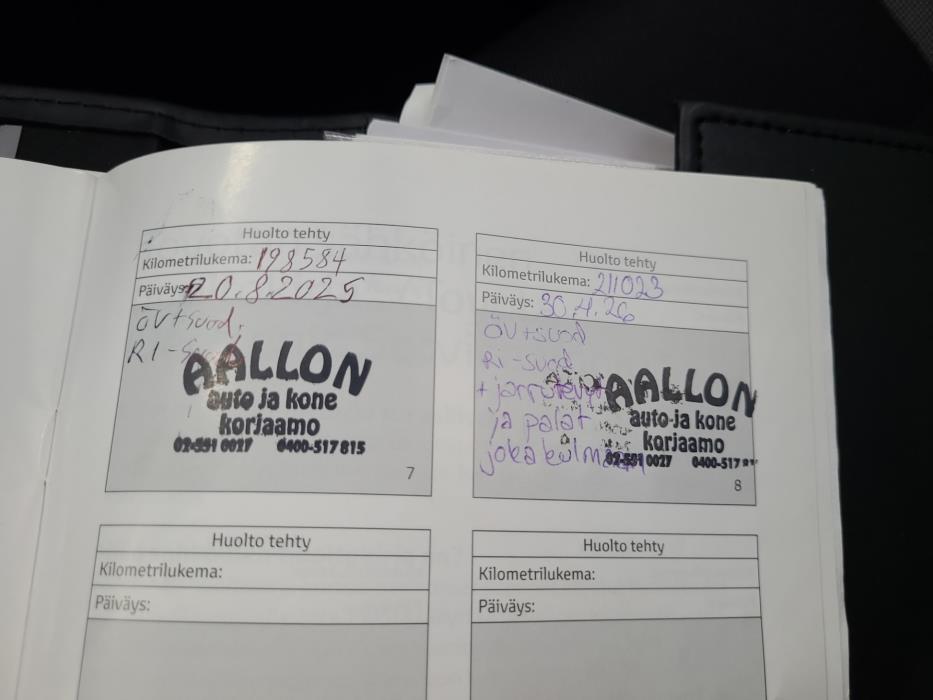 Huolto tehty
Kilometrilukema: 198584
Päiväys: 20.8.2025
ÖV+suod.
RI-suod
AALLON
auto ja kone
korjaamo
02-531 0027 0400-517 815
7
Huolto tehty
Kilometrilukema: 211023
Päiväys: 30.4.26
ÖV+suod
RI-suod
+ jarrulevyt
ja palat
joka kulmaan
AALLON
auto ja kone
korjaamo
02-531 0027 0400-517
8
Huolto tehty
Kilometrilukema:
Päiväys:
Huolto tehty
Kilometrilukema:
Päiväys: